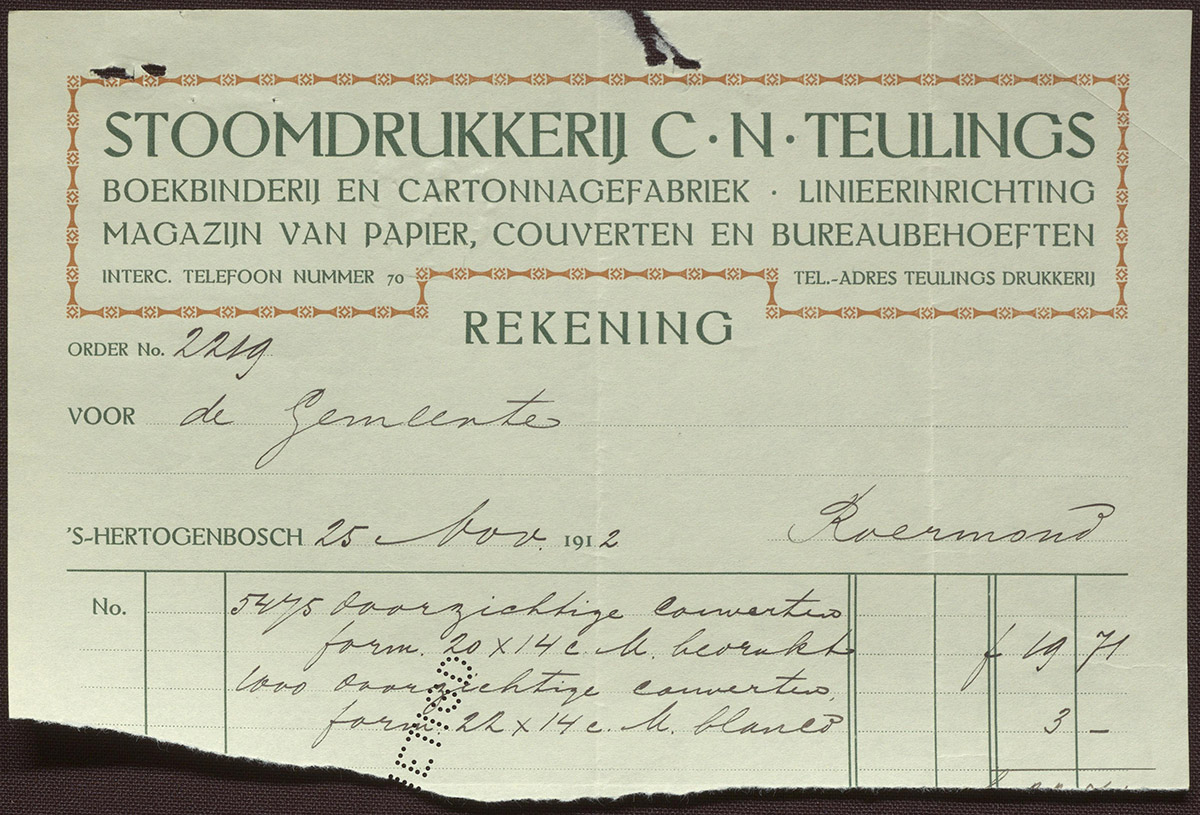 STOOMDRUKKERIJ C · N · TEULINGS
BOEKBINDERIJ EN CARTONNAGEFABRIEK · LINIEERINRICHTING
MAGAZIJN VAN PAPIER, COUVERTEN EN BUREAUBEHOEFTEN
INTERC. TELEFOON NUMMER 70 TEL.-ADRES TEULINGS DRUKKERIJ
REKENING
ORDER No. 2219
VOOR de Gemeente
'S-HERTOGENBOSCH 25 Nov. 1912 Roermond
No. 5475 doorzichtige couverten
form. 20 x 14 c. M. bedrukt f 19 71
1000 doorzichtige couverten,
form. 22 x 14 c. M. blanco 3 –